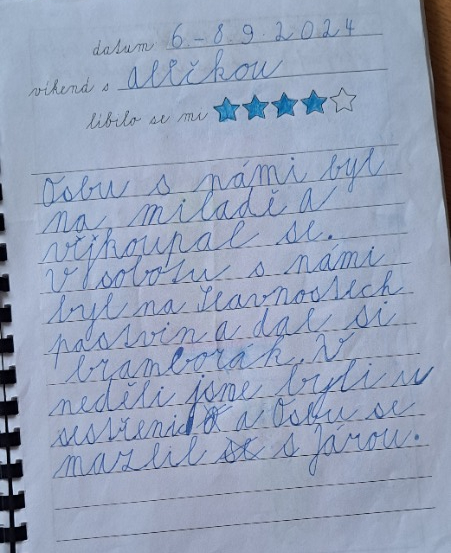 datum 6-8 9 2024
víkend s Alíčkou
líbilo se mi
s námi byl
na miladě a
vykoupal se.
V sobotu s námi
byl na slavnostech
pastvin a dal si
bramborák. V
neděli jsme byli u
a se
mazlil s Járou.